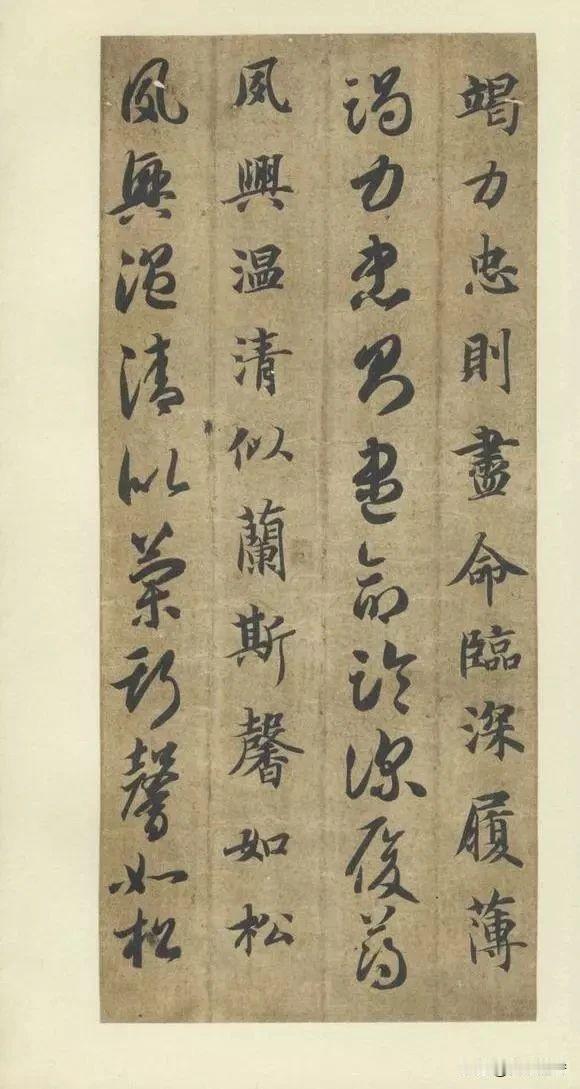 竭力忠則盡命臨深履薄
竭力忠則盡命臨深履薄
夙興温清似蘭斯馨如松
夙興温清似蘭斯馨如松